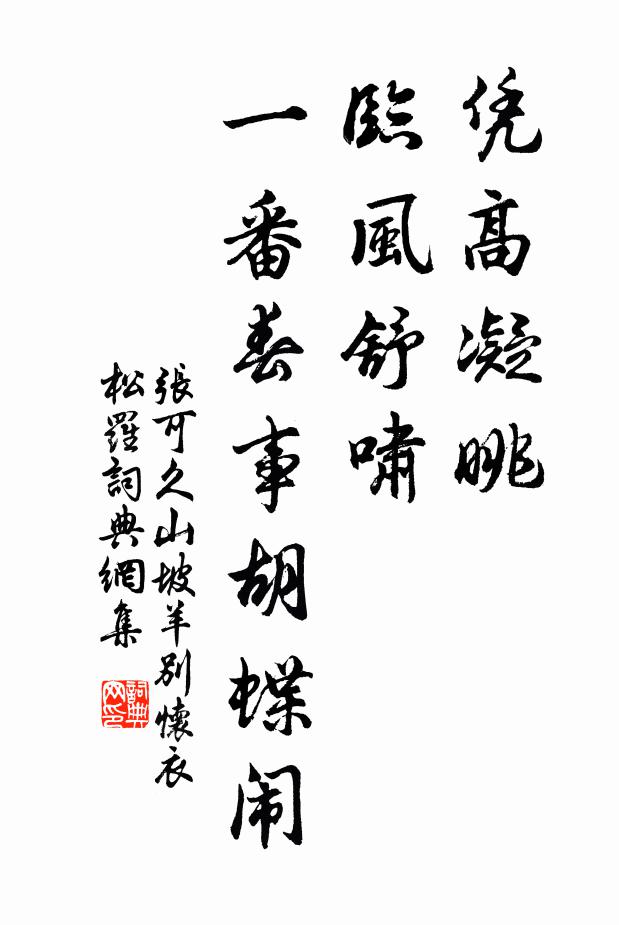 凭高凝眺
臨風舒嘯
一番春事胡蝶闹
張可久山坡羊别懷衣
松羅詞典網集
詞典网印